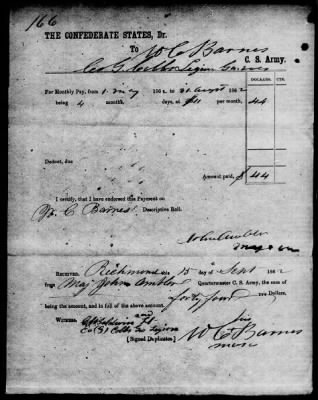 166
THE CONFEDERATE STATES, Dr.
To W C Barnes
Co G Cobbs Legion C. S. Army.
DOLLARS. CTS.
For Monthly Pay, from 1 May 186 2 to 31 August 186 2
being 4 months, days, at $11 per month, 44
Deduct, due
Amount paid, $ 44
I certify, that I have endorsed this Payment on
W. C Barnes Descriptive Roll.
John Ambler
RECEIVED, Richmond on 15 day of Sept 186 2
from Maj John Ambler Quartermaster C. S. Army, the sum
of forty four Dollars,
being the amount, and in full of the above amount.
WITNESS,
Co (G) Cobbs Ga Legion
[Signed Duplicates]
his
W C Barnes
mark